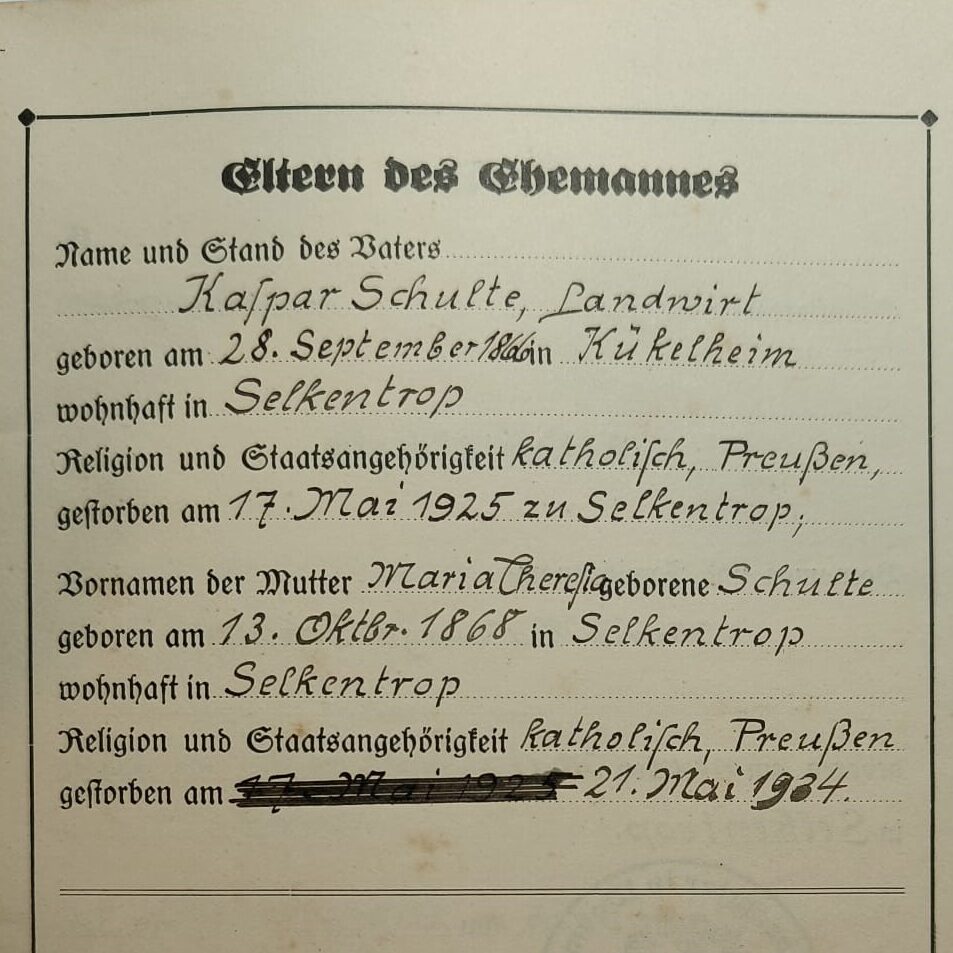 Eltern des Ehemannes
Name und Stand des Vaters
Kaſpar Schulte, Landwirt
geboren am 28. September 1866 in Kükelheim
wohnhaft in Selkentrop
Religion und Staatsangehörigkeit katholiſch, Preußen,
geſtorben am 17. Mai 1925 zu Selkentrop,
Vornamen der Mutter Maria Thereſia geborene Schulte
geboren am 13. Oktbr. 1868 in Selkentrop
wohnhaft in Selkentrop
Religion und Staatsangehörigkeit katholiſch, Preußen
geſtorben am 17. Mai 1925 21. Mai 1934.